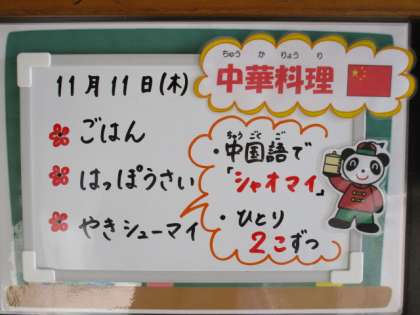 11月11日(木)
ちゅうかりょうり
中華料理
ごはん
はっぽうさい
やきシューマイ
ちゅうごくご
・中国語で
「シャオマイ」
・ひとり
2こずつ